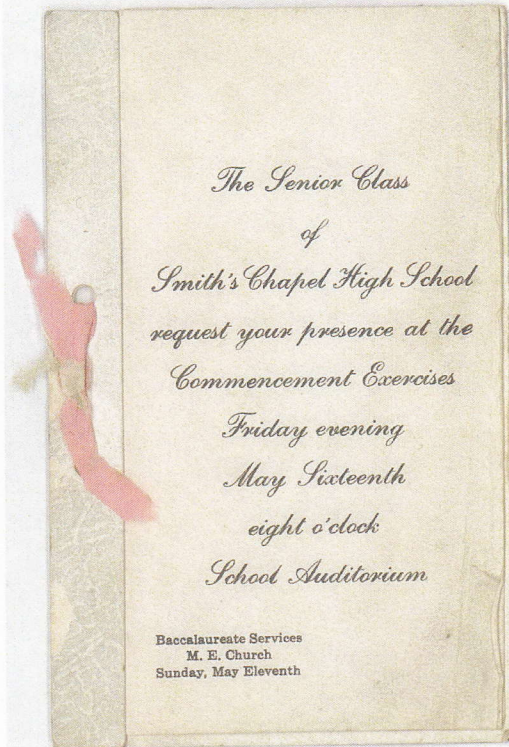 The Senior Class
of
Smith's Chapel High School
request your presence at the
Commencement Exercises
Friday evening
May Sixteenth
eight o'clock
School Auditorium
Baccalaureate Services
M. E. Church
Sunday, May Eleventh